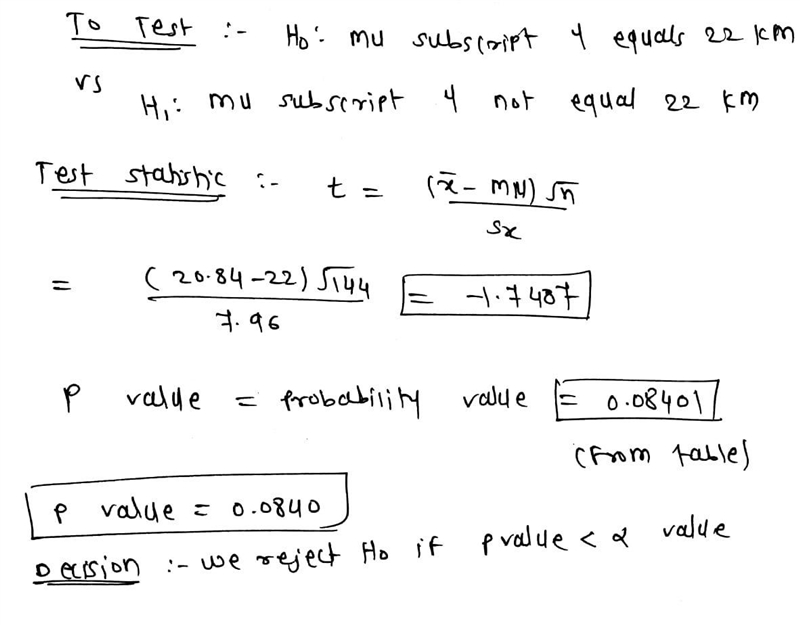 To Test :- H₀: mu subscript y equals 22 km
vs
H₁: mu subscript y not equal 22 km
Test statistic :- t = (x̄ - MN) √n / sx
= (20.84 -22) √144 / 7.96 = -1.7487
P value = probability value = 0.08401
(From table)
P value = 0.0840
Decision :- we reject H₀ if p value < α value